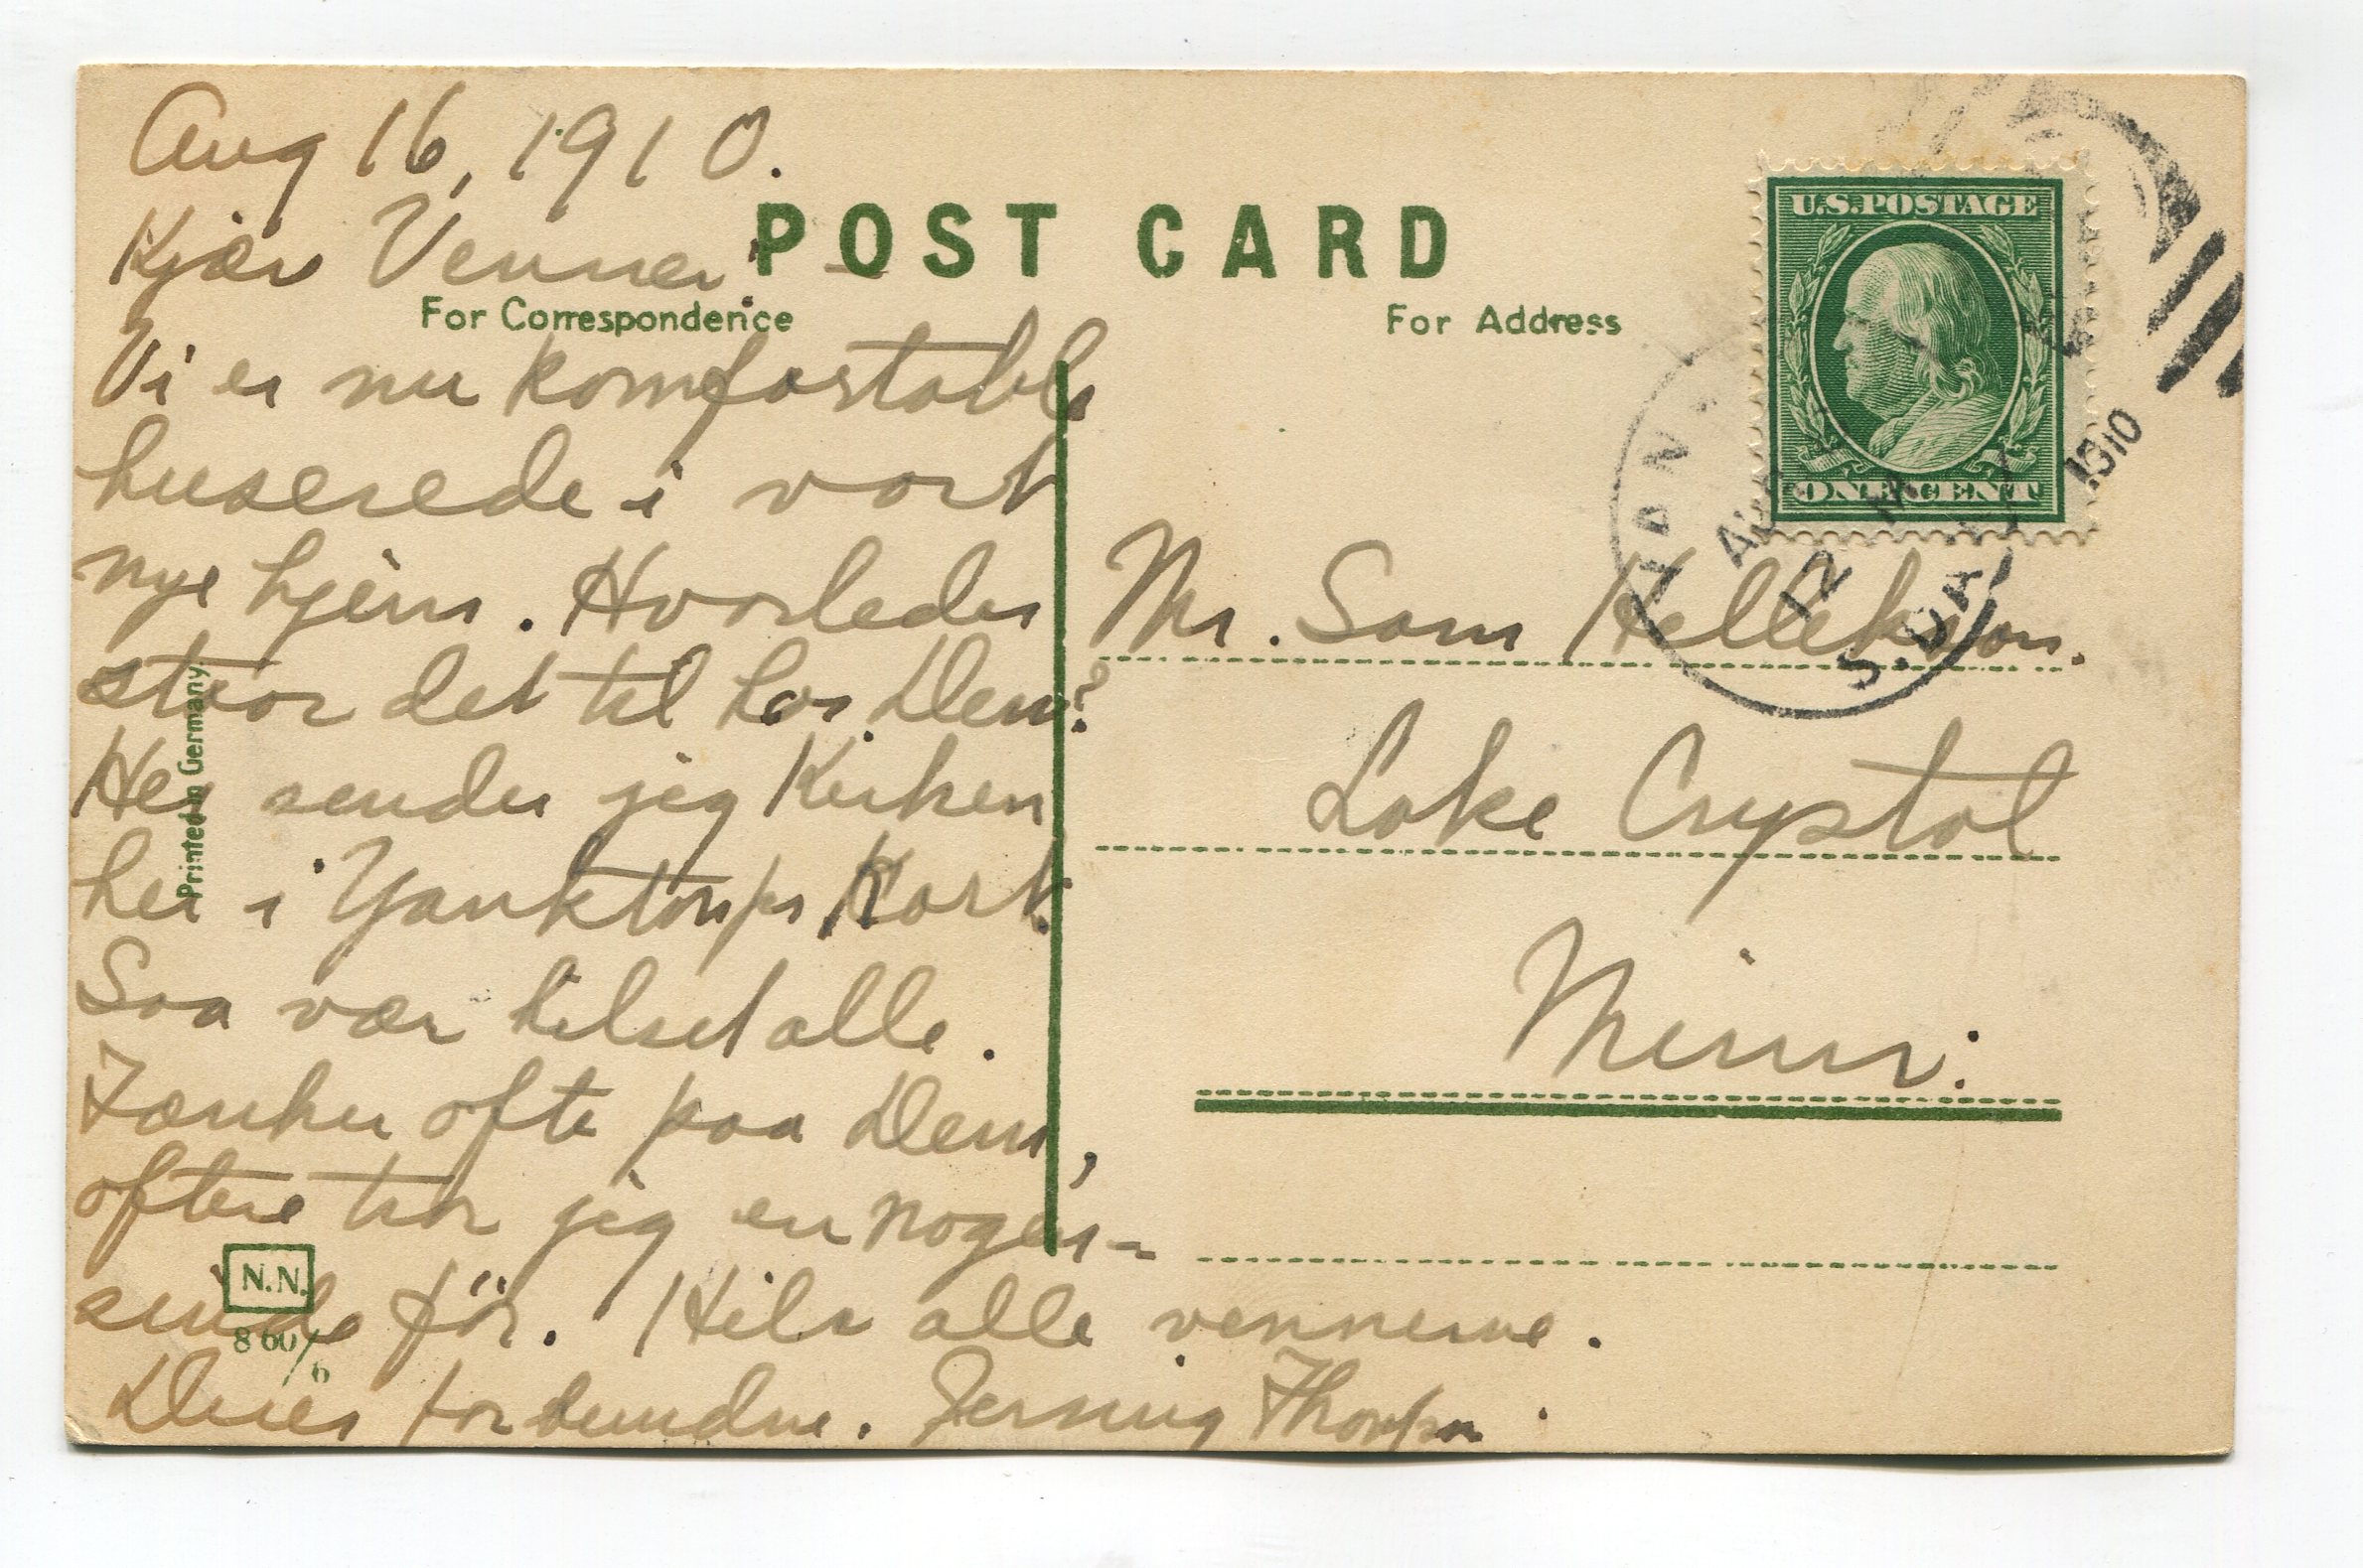 Aug 16, 1910.
Kjære Venner:
POST CARD
For Correspondence
For Address
Vi er nu komfortable
huserede i vort
nye hjem. Hvorledes
staar det til hos Dem?
Her sender jeg Kirken
her i Yankton paa Kort.
Saa vær hilset alle.
Tænker ofte paa Dem,
oftere tror jeg en nogen-
sinde för. Hils alle vennerne.
Deres forbundne. Thorson
Printed in Germany.
N.N.
860/6
U.S.POSTAGE
ONE CENT
12 M
1910
S.DAK
Mr. Sam Kellekson.
Lake Crystal
Minn.